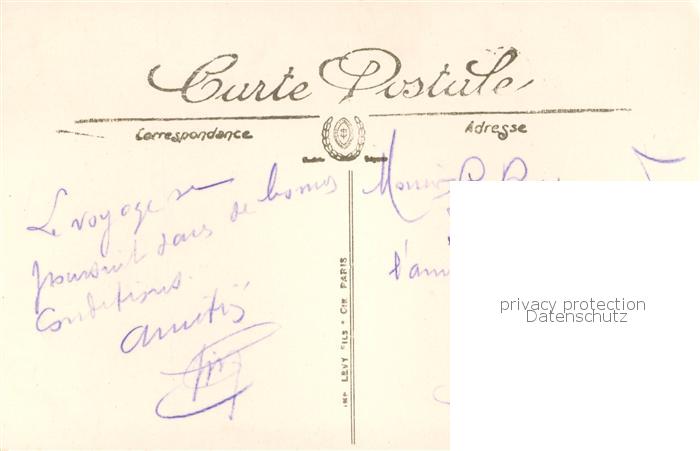 Carte Postale
Correspondance
Adresse
Le voyage se
poursuit dans de bonnes
conditions.
amitiés
Monsieur
l'ami
IMP LEVY FILS & CIE PARIS
privacy protection
Datenschutz